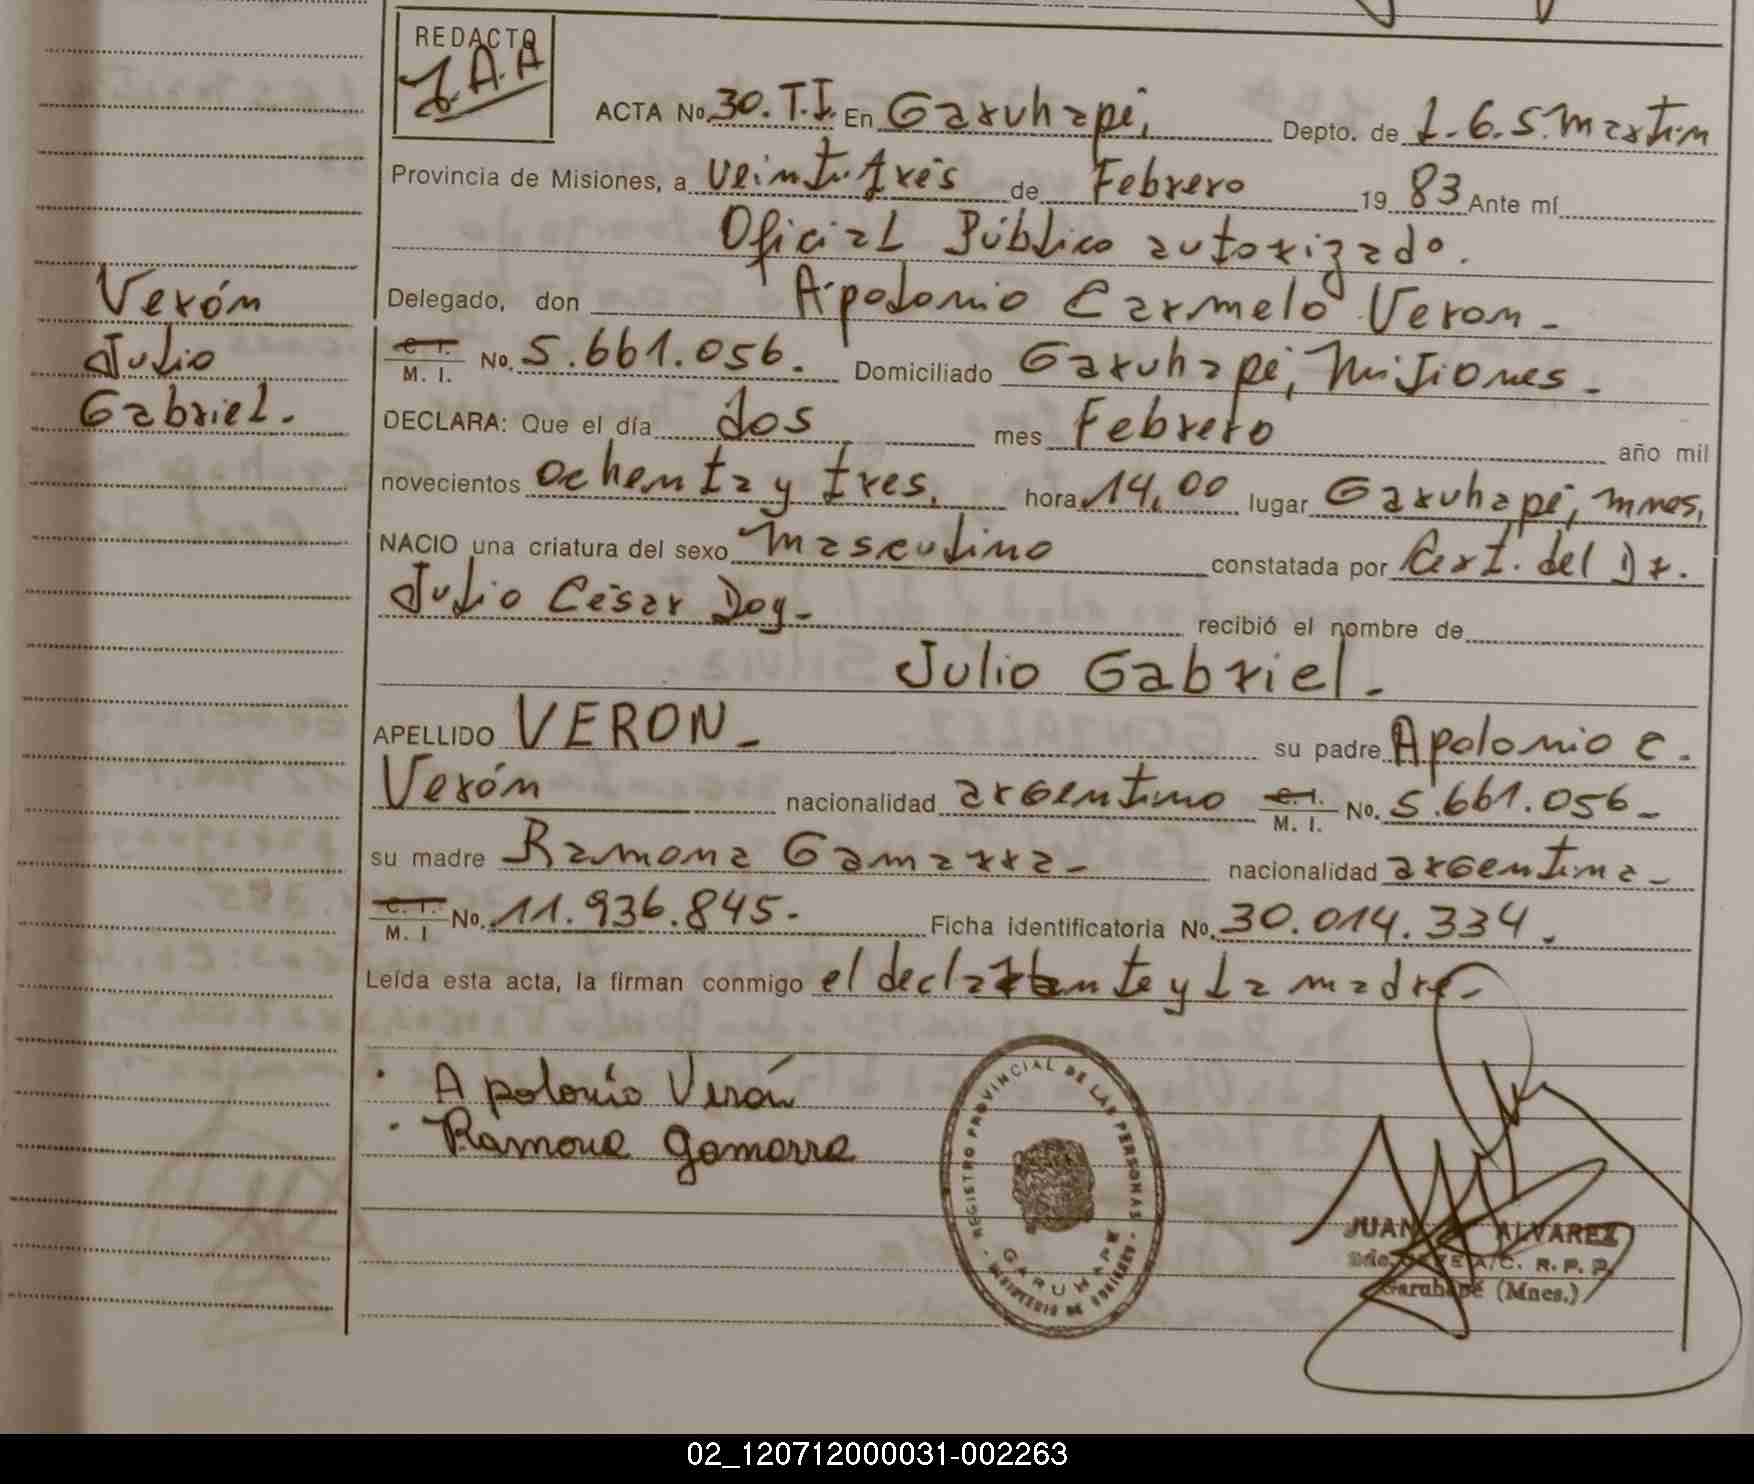 REDACTO
J.A.A
ACTA No. 30. T.I. En Garuhapé, Depto. de L.G.S.Martín
Provincia de Misiones, a veintitrés de Febrero 19 83 Ante mí
Oficial Público autorizado.
Delegado, don Apolonio Carmelo Veron -
C. I. M. I. No. 5.661.056. Domiciliado Garuhapé, Misiones -
DECLARA: Que el día dos mes Febrero año mil
novecientos ochenta y tres, hora 14,00 lugar Garuhapé, mnes,
NACIO una criatura del sexo masculino constatada por Cert. del Dr.
Julio César Doy - recibió el nombre de
Julio Gabriel -
APELLIDO VERON - su padre Apolonio C.
Verón nacionalidad argentino C. I. M. I. No. 5.661.056 -
su madre Ramona Gamarra - nacionalidad argentina -
C. I. M. I No. 11.936.845. Ficha identificatoria No. 30.014.334.
Leída esta acta, la firman conmigo el declarante y la madre -
Verón
Julio
Gabriel.
Apolonio Verón
Ramona Gamarra
REGISTRO PROVINCIAL DE LAS PERSONAS
GARUHAPE
MINISTERIO DE GOBIERNO
JUAN ALVAREZ
A/C. R. P. P.
Garuhapé (Mnes.)
02_120712000031-002263